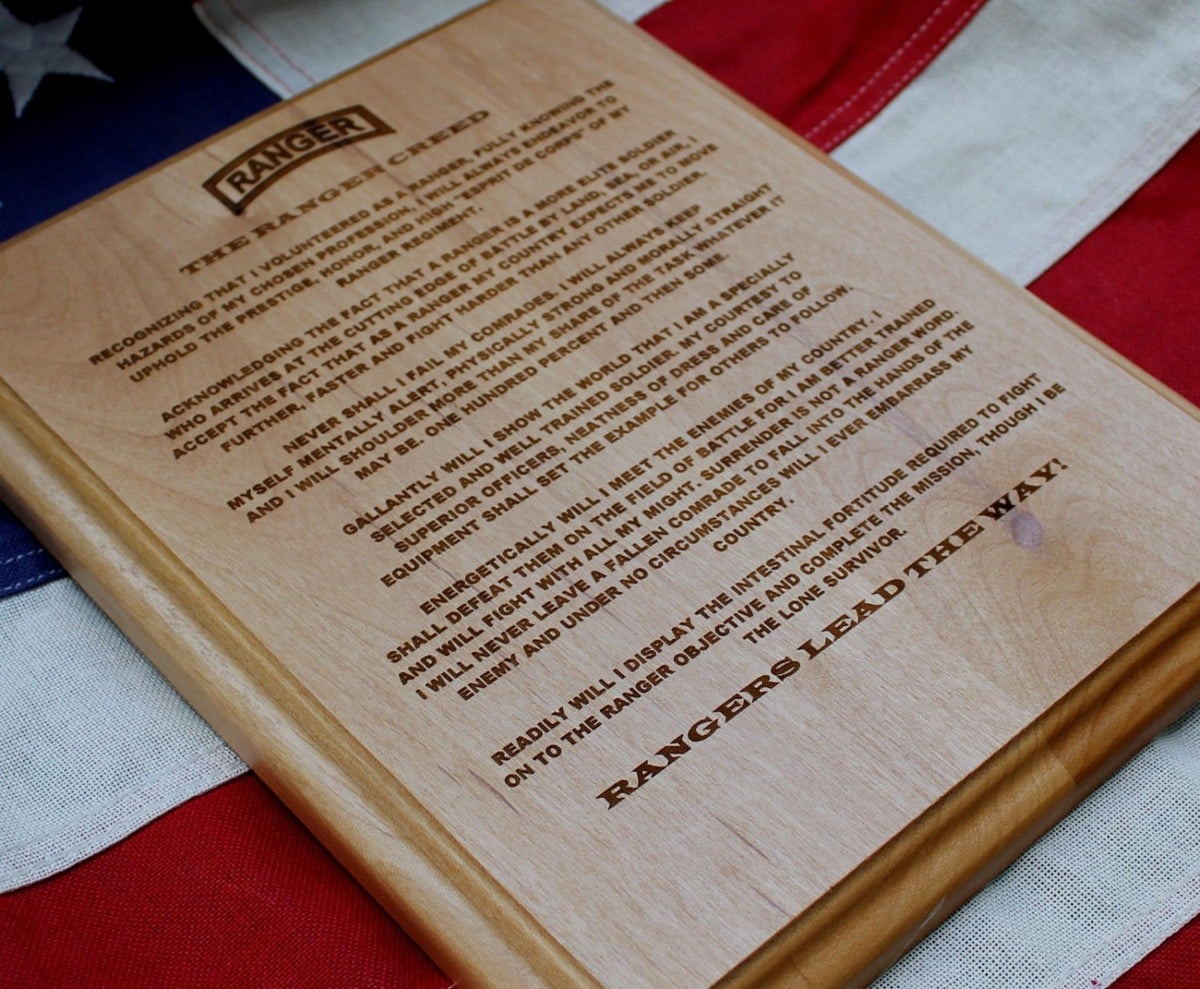 RANGER
THE RANGER CREED
RECOGNIZING THAT I VOLUNTEERED AS A RANGER, FULLY KNOWING THE
HAZARDS OF MY CHOSEN PROFESSION, I WILL ALWAYS ENDEAVOR TO
UPHOLD THE PRESTIGE, HONOR, AND HIGH "ESPRIT DE CORPS" OF MY
RANGER REGIMENT.
ACKNOWLEDGING THE FACT THAT A RANGER IS A MORE ELITE SOLDIER
WHO ARRIVES AT THE CUTTING EDGE OF BATTLE BY LAND, SEA, OR AIR, I
ACCEPT THE FACT THAT AS A RANGER MY COUNTRY EXPECTS ME TO MOVE
FURTHER, FASTER AND FIGHT HARDER THAN ANY OTHER SOLDIER.
NEVER SHALL I FAIL MY COMRADES. I WILL ALWAYS KEEP
MYSELF MENTALLY ALERT, PHYSICALLY STRONG AND MORALLY STRAIGHT
AND I WILL SHOULDER MORE THAN MY SHARE OF THE TASK WHATEVER IT
MAY BE. ONE HUNDRED PERCENT AND THEN SOME.
GALLANTLY WILL I SHOW THE WORLD THAT I AM A SPECIALLY
SELECTED AND WELL TRAINED SOLDIER. MY COURTESY TO
SUPERIOR OFFICERS, NEATNESS OF DRESS AND CARE OF
EQUIPMENT SHALL SET THE EXAMPLE FOR OTHERS TO FOLLOW.
ENERGETICALLY WILL I MEET THE ENEMIES OF MY COUNTRY. I
SHALL DEFEAT THEM ON THE FIELD OF BATTLE FOR I AM BETTER TRAINED
AND WILL FIGHT WITH ALL MY MIGHT. SURRENDER IS NOT A RANGER WORD.
I WILL NEVER LEAVE A FALLEN COMRADE TO FALL INTO THE HANDS OF THE
ENEMY AND UNDER NO CIRCUMSTANCES WILL I EVER EMBARRASS MY
COUNTRY.
READILY WILL I DISPLAY THE INTESTINAL FORTITUDE REQUIRED TO FIGHT
ON TO THE RANGER OBJECTIVE AND COMPLETE THE MISSION, THOUGH I BE
THE LONE SURVIVOR.
RANGERS LEAD THE WAY!